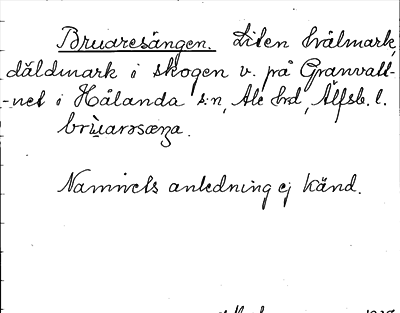 Bruaresängen. Liten hålmark,
däldmark i skogen v. på Granvatt-
-net i Hålanda s:n, Ale hrd, Älfsb. l.
Namnets anledning ej känd.